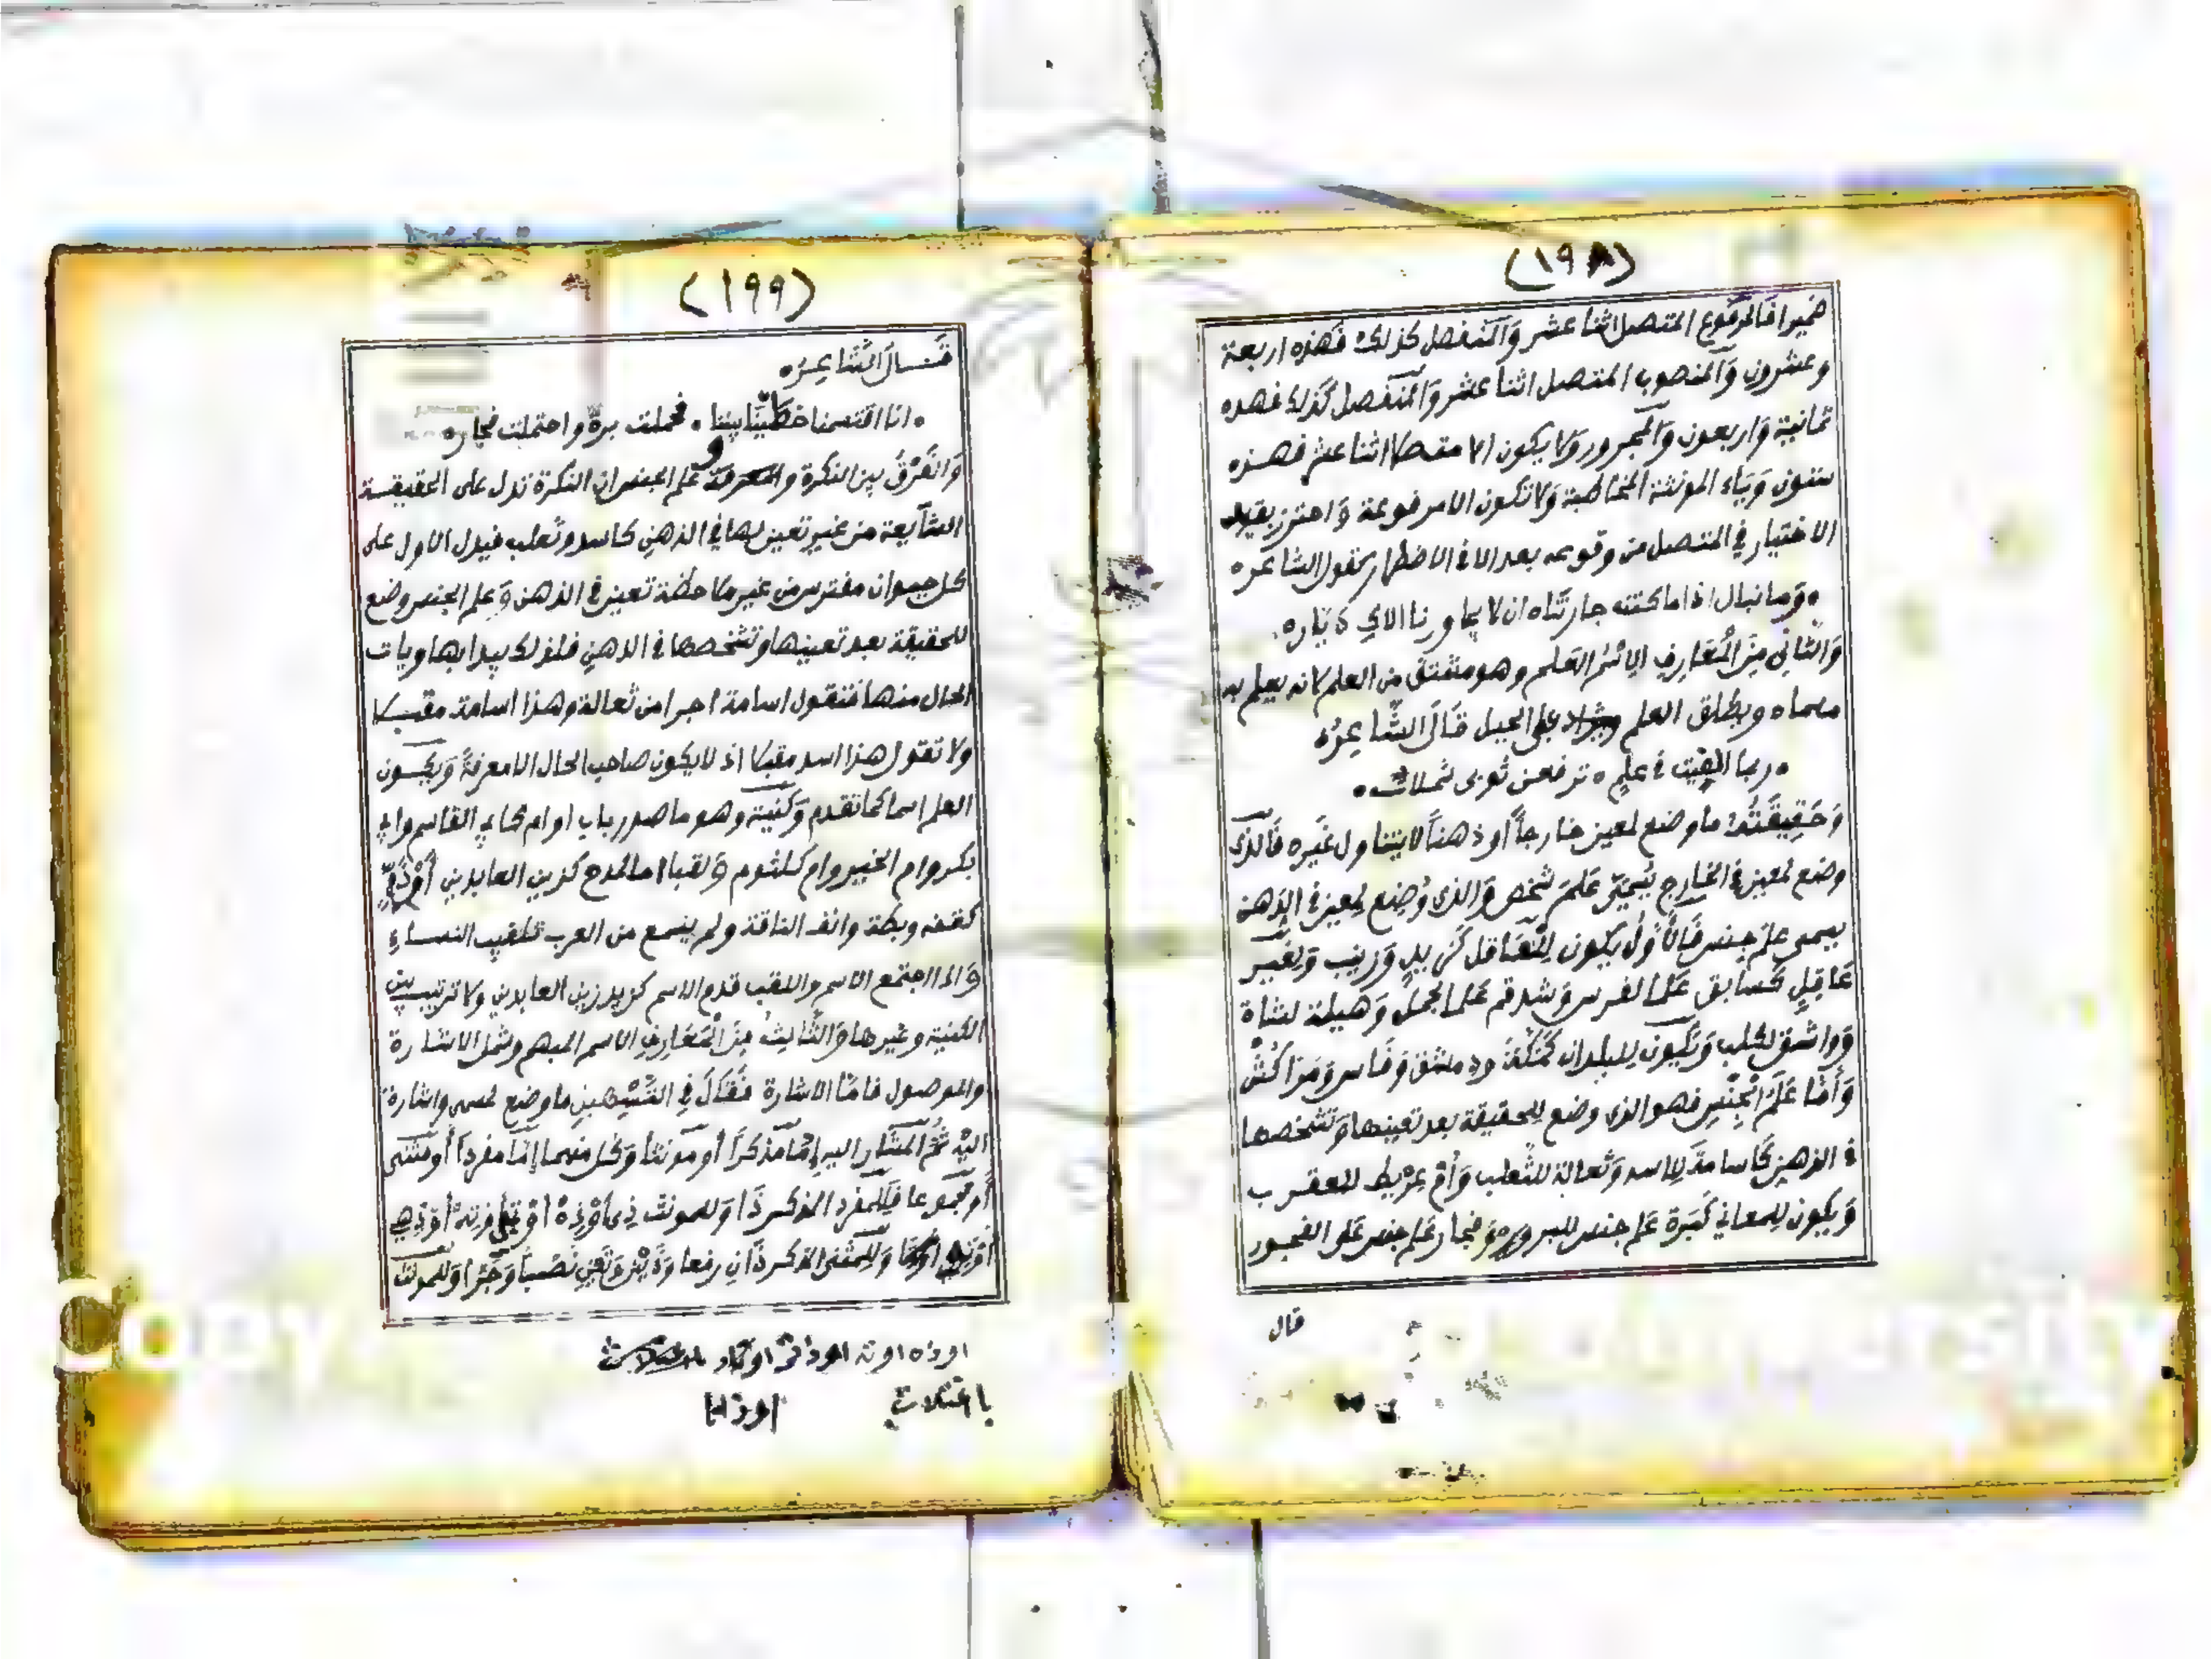 (١٩٨)
ضميرا فالمرفوع المتصل اثنا عشر والمنفصل كذلك فهذه اربعة
وعشرون والمنصوب المتصل اثنا عشر والمنفصل كذلك فهذه
ثمانية واربعون والمجرور ولا يكون الا متصلا اثنا عشر فهذه
ستون وياء المؤنثة المخاطبة ولا تكون الا مرفوعة واحترز بقيد
الاختيار في المتصل من وقوعه بعد الا في الاضطرار كقول الشاعر ه
وما نبال اذا ما كنت جارتناه ان لا يجاورنا الاك ديار ه
والثاني من المعارف الاسم العلم وهو مشتق من العلم لانه يعلم به
مسماه ويطلق العلم على الجبل قال الشاعر ه
ربما اوفيت في علم ه ترفعن ثوبي شملات ه
وحقيقته ما وضع لمعين خارجا او ذهنا لا يتناول غيره فالذي
وضع لمعين في الخارج يسمى علم شخص والذي وضع لمعين في الذهن
يسمى علم جنس فالاول يكون للعاقل كزيد وزينب ولغير
عاقل كسابق علما لفرس وشدقم علما لجمل وهيلة لشاة
وواشق لكلب وتكون للبلدان كمكة ودمشق وفاس ومراكش
وأما علم الجنس فهو الذي وضع للحقيقة بعد تعينها وتشخصها
في الذهن كاسامة للاسد وثعالة للثعلب وأم عريط للعقرب
ويكون للمعاني كبرة علم جنس للبرور وفجار علم جنس على الفجور
قال
(١٩٩)
قال الشاعر ه
ه انا اقتسمنا خطتينا بيننا ه فحملت برة واحتملت فجار ه
والفرق بين النكرة و علم الجنس ان النكرة تدل على الحقيقة
الشايعة من غير تعين لها في الذهن كاسد وثعلب فيدل الاول على
كل حيوان مفترس من غير ملاحظة تعين في الذهن وعلم الجنس وضع
للحقيقة بعد تعينها وتشخصها في الذهن فلذلك يبدا بها ويات
الحال منها فتقول اسامة اجرا من ثعالة وهذا اسامة مقبلا
ولا تقول هذا اسد مقبلا اذ لا يكون صاحب الحال الا معرفة ويكون
العلم اسما كما تقدم وكنية وهو ما صدر باب او ام كابي القاسم وابي
بكر وام الخير وام كلثوم ولقبا اما لمدح كزين العابدين أو ذم
كقفة وبطة وانف الناقة ولم يسمع من العرب تلقيب النساء
واذا اجتمع الاسم واللقب قدم الاسم كزيد زين العابدين ولا ترتيب بين
الكنية وغيرها والثالث من المعارف الاسم المبهم وشمل الاشارة
والموصول فاما الاشارة فقال في التسهيل ما وضع لمسمى واشارة
اليه ثم المشار اليه إما مذكرا أو مونثا وكل منهما إما مفردا أو مثنى
أو مجموعا فللمفرد المذكر ذا وللمونث ذي أو ذه أو تي أو ته أو ذهي
وللمثنى المذكر ذان رفعا وذين نصبا وجرا وللمونث
او ذه او ته او ذات
باختلاس